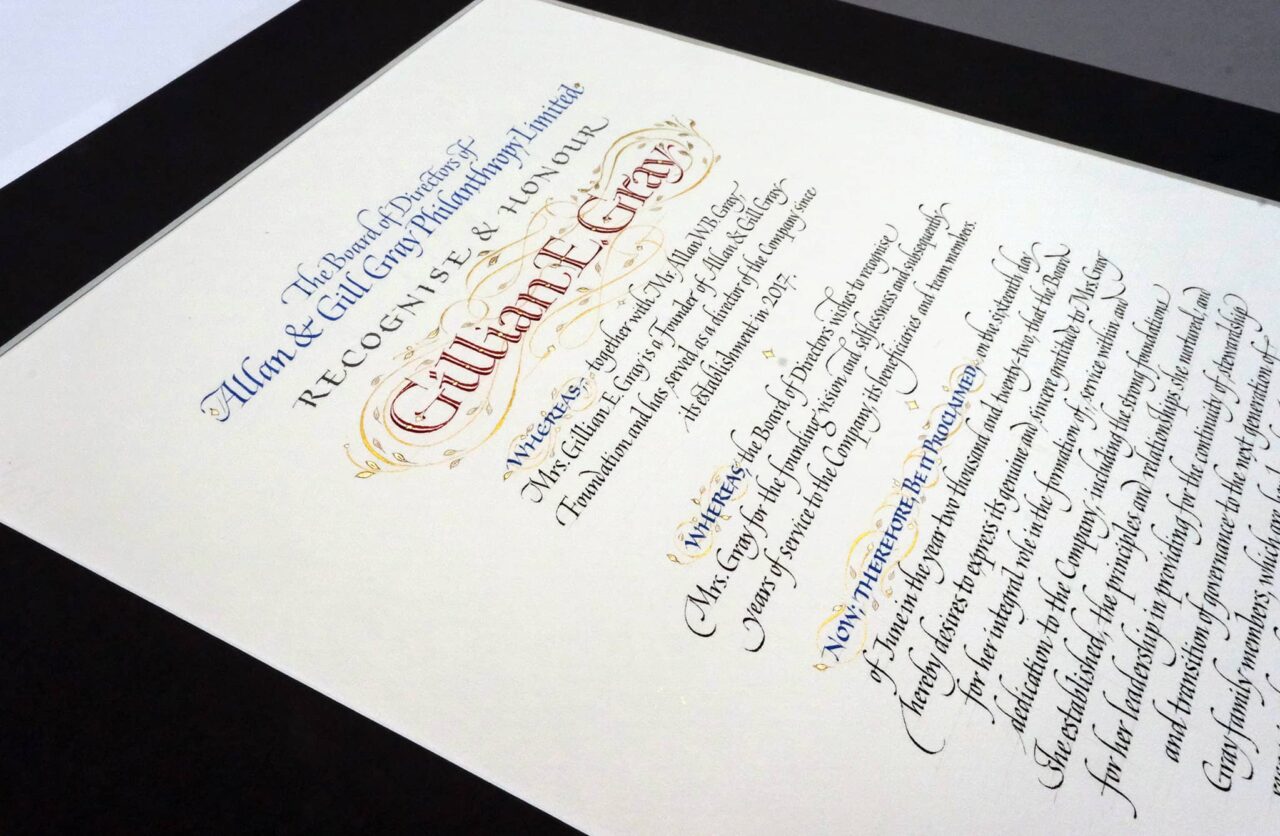 The Board of Directors of
Allan & Gill Gray Philanthropy Limited
RECOGNISE & HONOUR
Gillian E. Gray
WHEREAS, together with Mr. Allan W.B. Gray,
Mrs. Gillian E. Gray is a Founder of Allan & Gill Gray
Foundation and has served, as a director of the Company since
its establishment in 2017.
WHEREAS, the Board of Directors wishes to recognise
Mrs. Gray for the founding vision and selflessness and subsequently
years of service to the Company, its beneficiaries and team members.
NOW, THEREFORE, BE IT PROCLAIMED, on the sixteenth day
of June in the year two thousand and twenty-two, that the Board
hereby desires to express its genuine and sincere gratitude to Mrs. Gray
for her integral role in the formation of, service within and
dedication to the Company, including the strong foundations
She established, the principles and relationships she nurtured, and
for her leadership in providing for the continuity of stewardship
and transition of governance to the next generation of
Gray family members, which